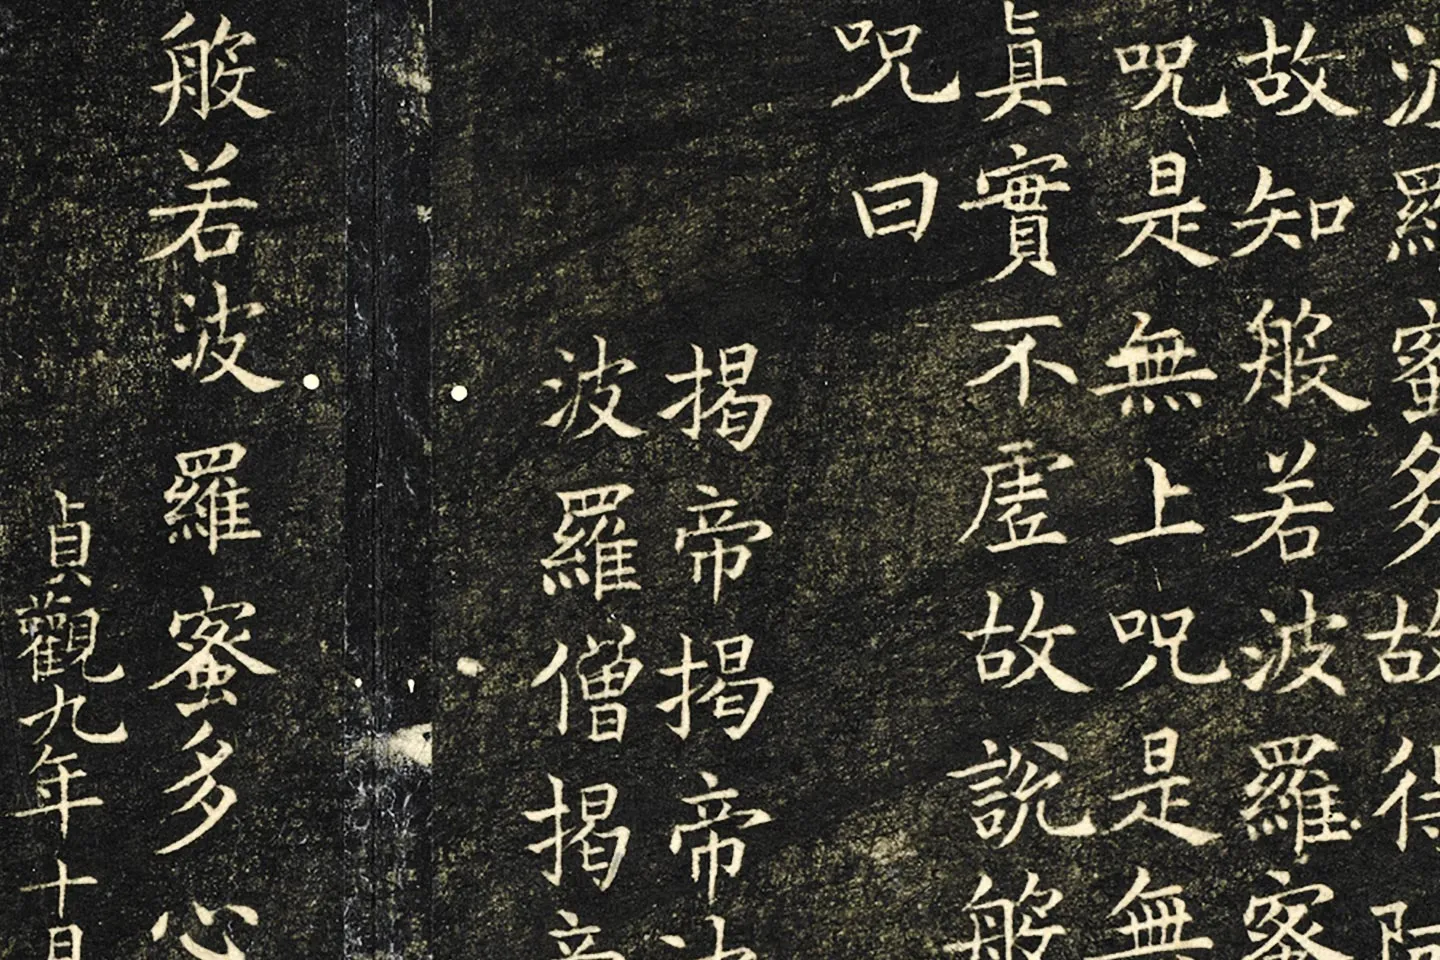 羅蜜多故得
故知般若波羅蜜
咒是無上咒是無
真實不虛故說般
咒曰
揭帝揭帝
波羅僧揭帝
般若波羅蜜多心
貞觀九年十月